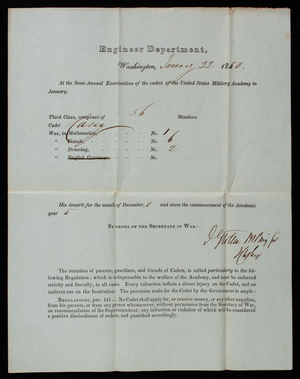 Engineer Department,
Washington, January 22 1850.
At the Semi-Annual Examination of the cadets of the United States Military Academy in
January.
Third Class, composed of 56 Members.
Cadet Casey
Was, in Mathematics, No. 1
" French, No. 6
" Drawing, No. 2
" English Grammar, No.
His demerit for the month of December, 0 and since the commencement of the Academic
year
By order of the Secretary of War:
The attention of parents, guardians, and friends of Cadets, is called particularly to the fol-
lowing Regulation; which is indispensable to the welfare of the Academy, and must be enforced
strictly and literally, in all cases. Every infraction inflicts a direct injury on the Cadet, and an
indirect one on the Institution. The provision made for the Cadet by the Government is ample:
Regulations, par. 141:. No Cadet shall apply for, or receive money, or any other supplies,
from his parents, or from any person whomsoever, without permission from the Secretary of War,
on recommendation of the Superintendent; any infraction or violation of which will be considered
a positive disobedience of orders, and punished accordingly.